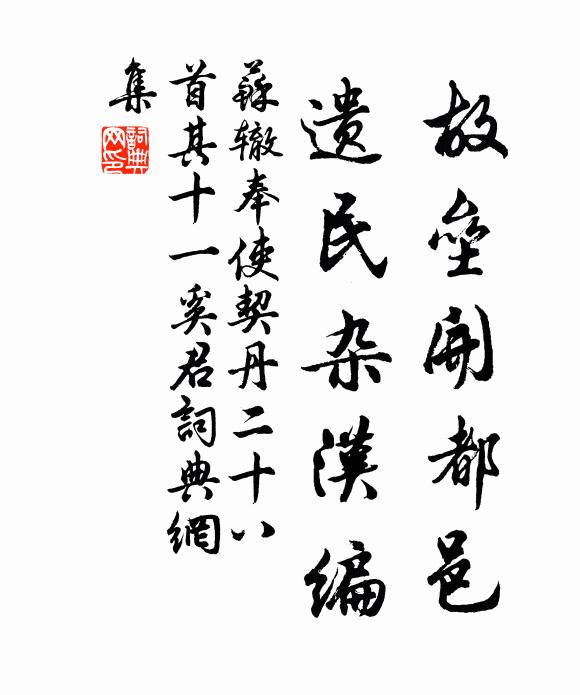 故垒開都邑
遗民杂漢編
蘇辙奉使契丹二十八
首其十一奚君詞典網
集
詞典
网印